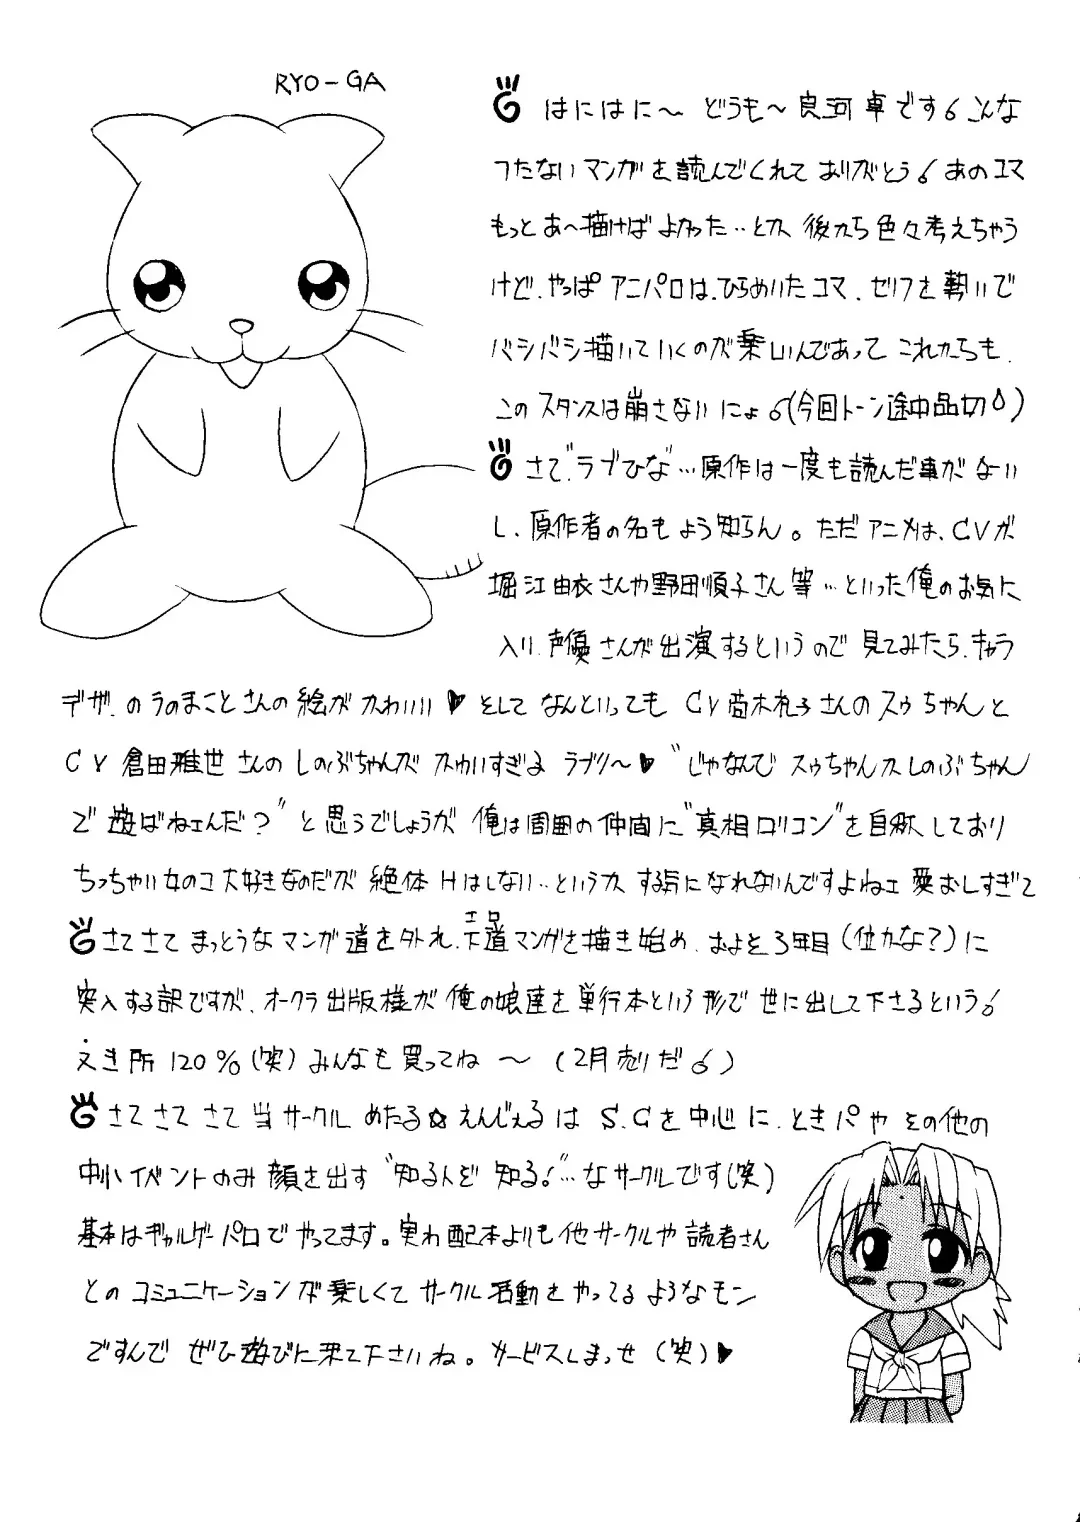 RYO-GA
はにはに〜 どうも〜良河 卓です♂こんな
つたないマンガを読んでくれて ありがとう♂あのコマ
もっとあ〜描けば よかった…とか 後から色々考えちゃう
けど、やっぱアニパロは、ひらめいたコマ、セリフを勢いで
バシバシ描いていくのが楽しいんであって これからも、
このスタンスは崩さないにょ♂(今回トーン途中品切)
さて"ラブひな"…原作は一度も読んだ事がない
し、原作者の名もよう知らん。ただアニメは、CVが
堀江由衣さんや野田順子さん等…といった俺のお気に
入り、声優さんが出演するというので見てみたら、キャラ
デザ、のうのまことさんの絵がかわいい♥そしてなんといっても CV高木礼子さんのスゥちゃんと
CV 倉田雅世さんのしのぶちゃんがカワいすぎる ラブリ〜♥"じゃなんで スゥちゃんカしのぶちゃん
で遊ばねェんだ?"と思うでしょうが 俺は周囲の仲間に"真相ロリコン"を自称しており
ちっちゃい女のコ大好きなのだが 絶体Hはしない…というか する気になれないんですよねェ 愛おしすぎて
さてさて まっとうなマンガ道を外れ、下道マンガを描き始め、およそ3年目(位かな?)に
エロ
突入する訳ですが、オークラ出版様が 俺の娘達を単行本という形で世に出して下さるという♂
えき所120%(笑)みんなも買ってね 〜 (2月売りだ♂)
さてさてさて当サークル めたる☆えんじぇるは S.Cを中心に、ときパや その他の
中小イベントのみ顔を出す"知る人ぞ 知る!"…なサークルです(笑)
基本はギャルゲーパロでやってます。実わ配本よりも他サークルや読者さん
とのコミュニケーションが楽しくてサークル活動をやってるようなモン
ですんで ぜひ遊びに来て下さいね。サービスしまっせ(笑)♥